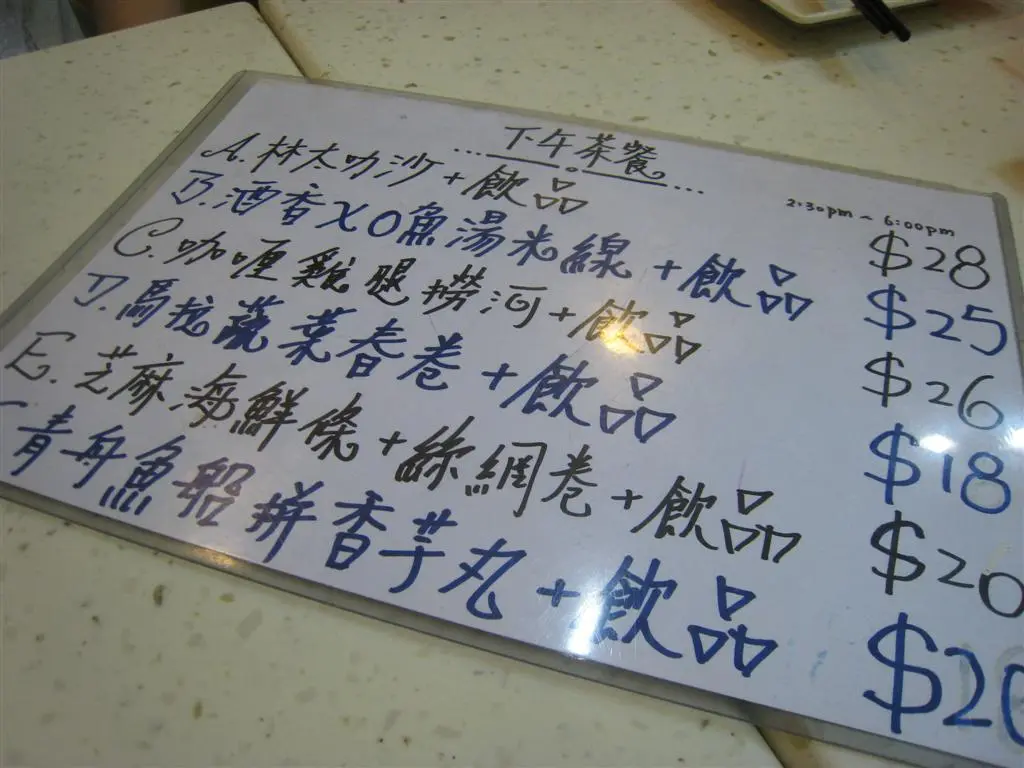 下午茶餐
2:30pm ~ 6:00pm
A. 林太叻沙 + 飲品 $28
B. 酒香XO魚湯米線 + 飲品 $25
C. 咖喱雞腿撈河 + 飲品 $26
D. 馬拉蔬菜春卷 + 飲品 $18
E. 芝麻海鮮條 + 絲網卷 + 飲品 $20
青舟魚船拼香芋丸 + 飲品 $20